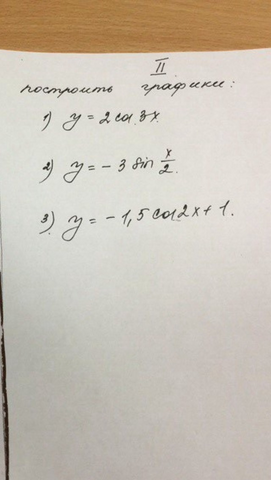 II
построить графики:
1) y = 2 cos 3x.
2) y = - 3 sin x/2.
3) y = - 1,5 cos 2x + 1.